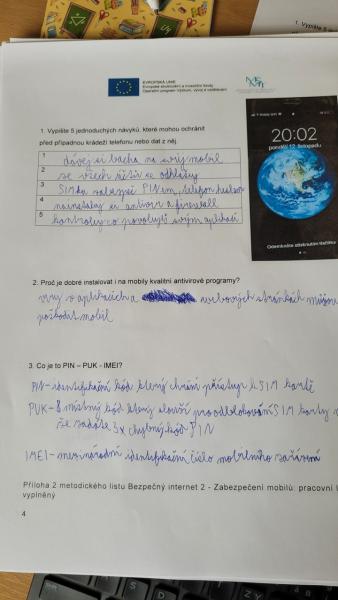 1. Vypište
EVROPSKÁ UNIE
Evropské strukturální a investiční fondy
Operační program Výzkum, vývoj a vzdělávání
1. Vypište 5 jednoduchých návyků, které mohou ochránit
před případnou krádeží telefonu nebo dat z něj.
1 dávej si bacha na svůj mobil
2 ze všech účtů se odhlašuj
3 SIMku zabezpeč PINem, telefon heslem
4 nainstaluj si antivir a firewall
5 kontroluj co povoluješ svým aplikací
20:02
pondělí 12. listopadu
Odemknete stisknutím tlačítka
2. Proč je dobré instalovat i na mobily kvalitní antivirové programy?
viry v aplikacích a webových stránkách můžou
poškodit mobil
3. Co je to PIN – PUK - IMEI?
PIN - identifikační kód který chrání přístup k SIM kartě
PUK - 8 místný kód který slouží pro odblokování SIM karty
že zadáte 3x chybný kód PIN
IMEI - mezinárodní identifikační číslo mobilního zařízení
Příloha 2 metodického listu Bezpečný internet 2 - Zabezpečení mobilů: pracovní l
vyplněný
4